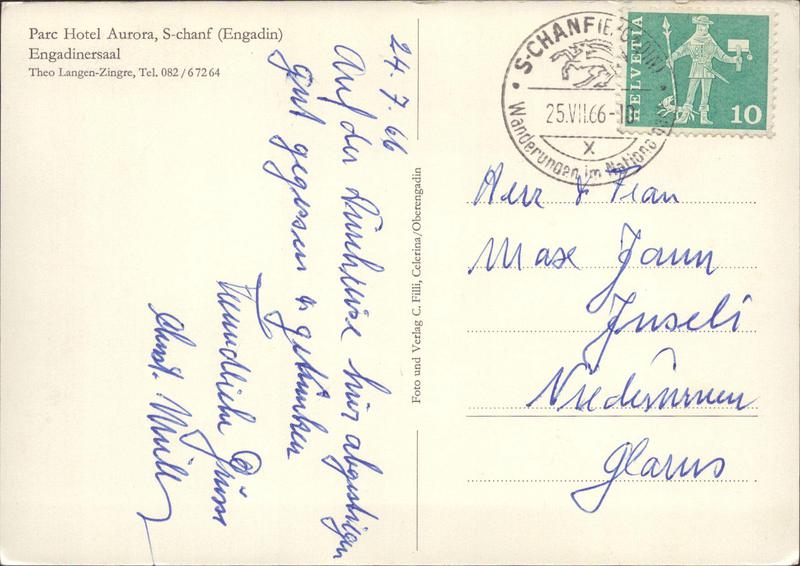 Parc Hotel Aurora, S-chanf (Engadin)
Engadinersaal
Theo Langen-Zingre, Tel. 082 / 6 72 64
24.7.66
Auf der hier abgestiegen
gut gegessen & getrunken
Freundliche Grüsse
Christ. Müll
Foto und Verlag C. Filli, Celerina/Oberengadin
S-CHANF (ENGADIN)
25.VII.66-10
X
Wanderungen im National
HELVETIA
10
Herr & Frau
Max Jann
Inseli
Niederurnen
Glarus